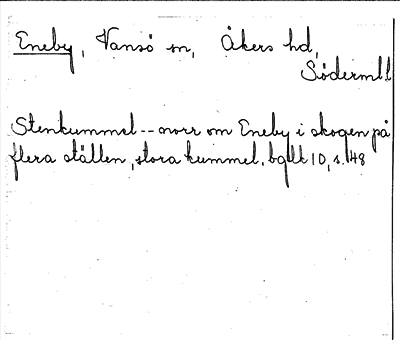 Eneby, Vansö sn, Åkers hd,
Söderml
Stenkummel -- norr om Eneby i skogen på
flera ställen, stora kummel. bgllt 10, s. 48